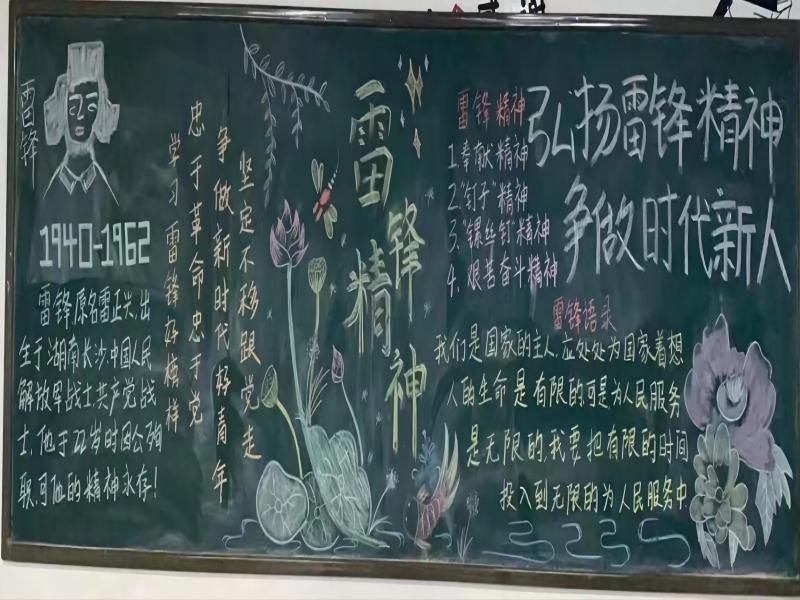 雷锋
1940-1962
雷锋原名雷正兴,出
生于湖南长沙.中国人民
解放军战士共产党战
士,他于22岁时因公殉
职.可他的精神永存!
学习雷锋好榜样
忠于革命忠于党
争做新时代好青年
坚定不移跟党走
雷锋精神
雷锋精神
1.奉献精神
2."钉子"精神
3."螺丝钉"精神
4.艰苦奋斗精神
弘扬雷锋精神
争做时代"新人
雷锋语录
我们是国家的主人,应处处为国家着想
人的生命是有限的.可是为人民服务
是无限的,我要把有限的时间
投入到无限的为人民服务中